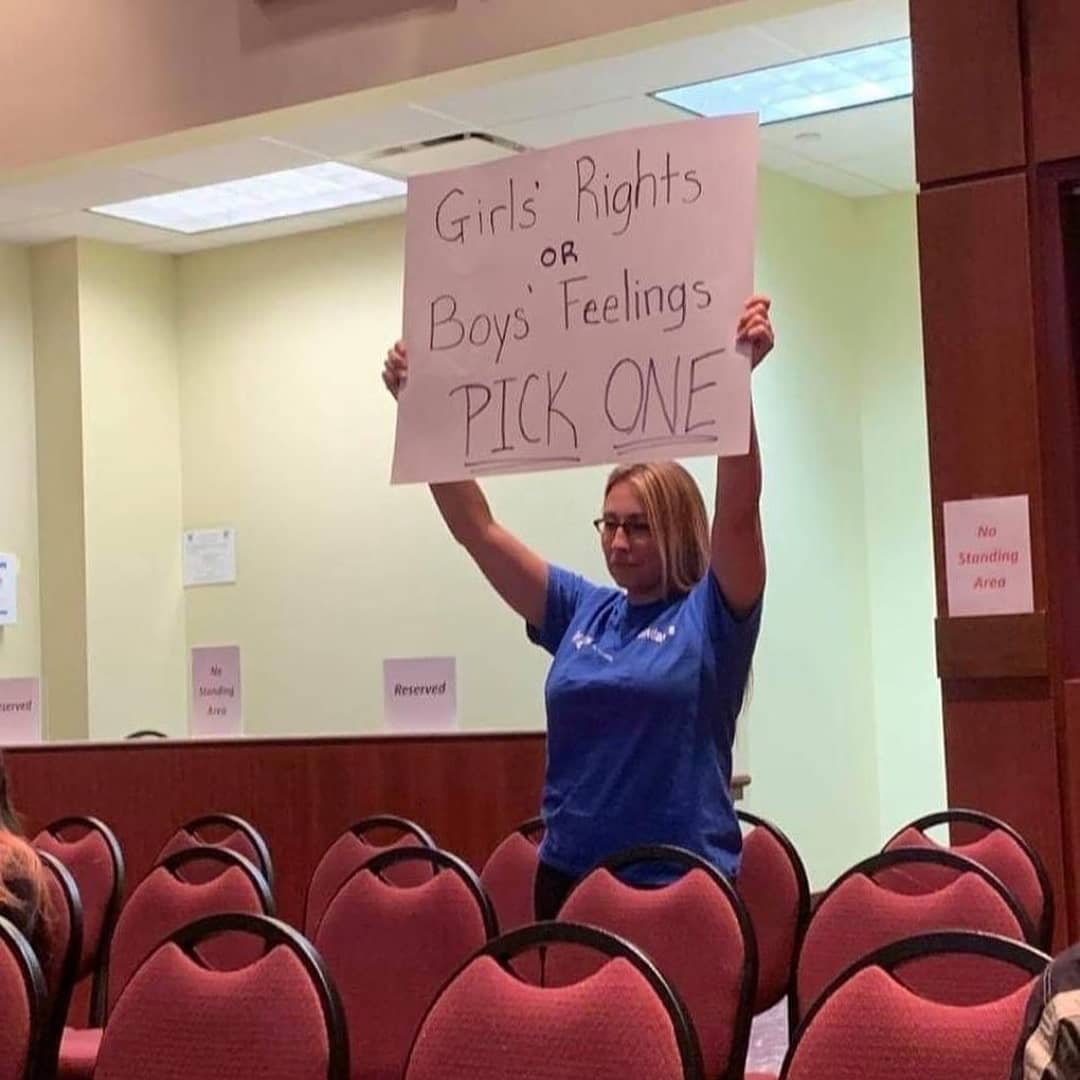 Girls' Rights
OR
Boys' Feelings
PICK ONE
No
Standing
Area
No
Standing
Area
Reserved